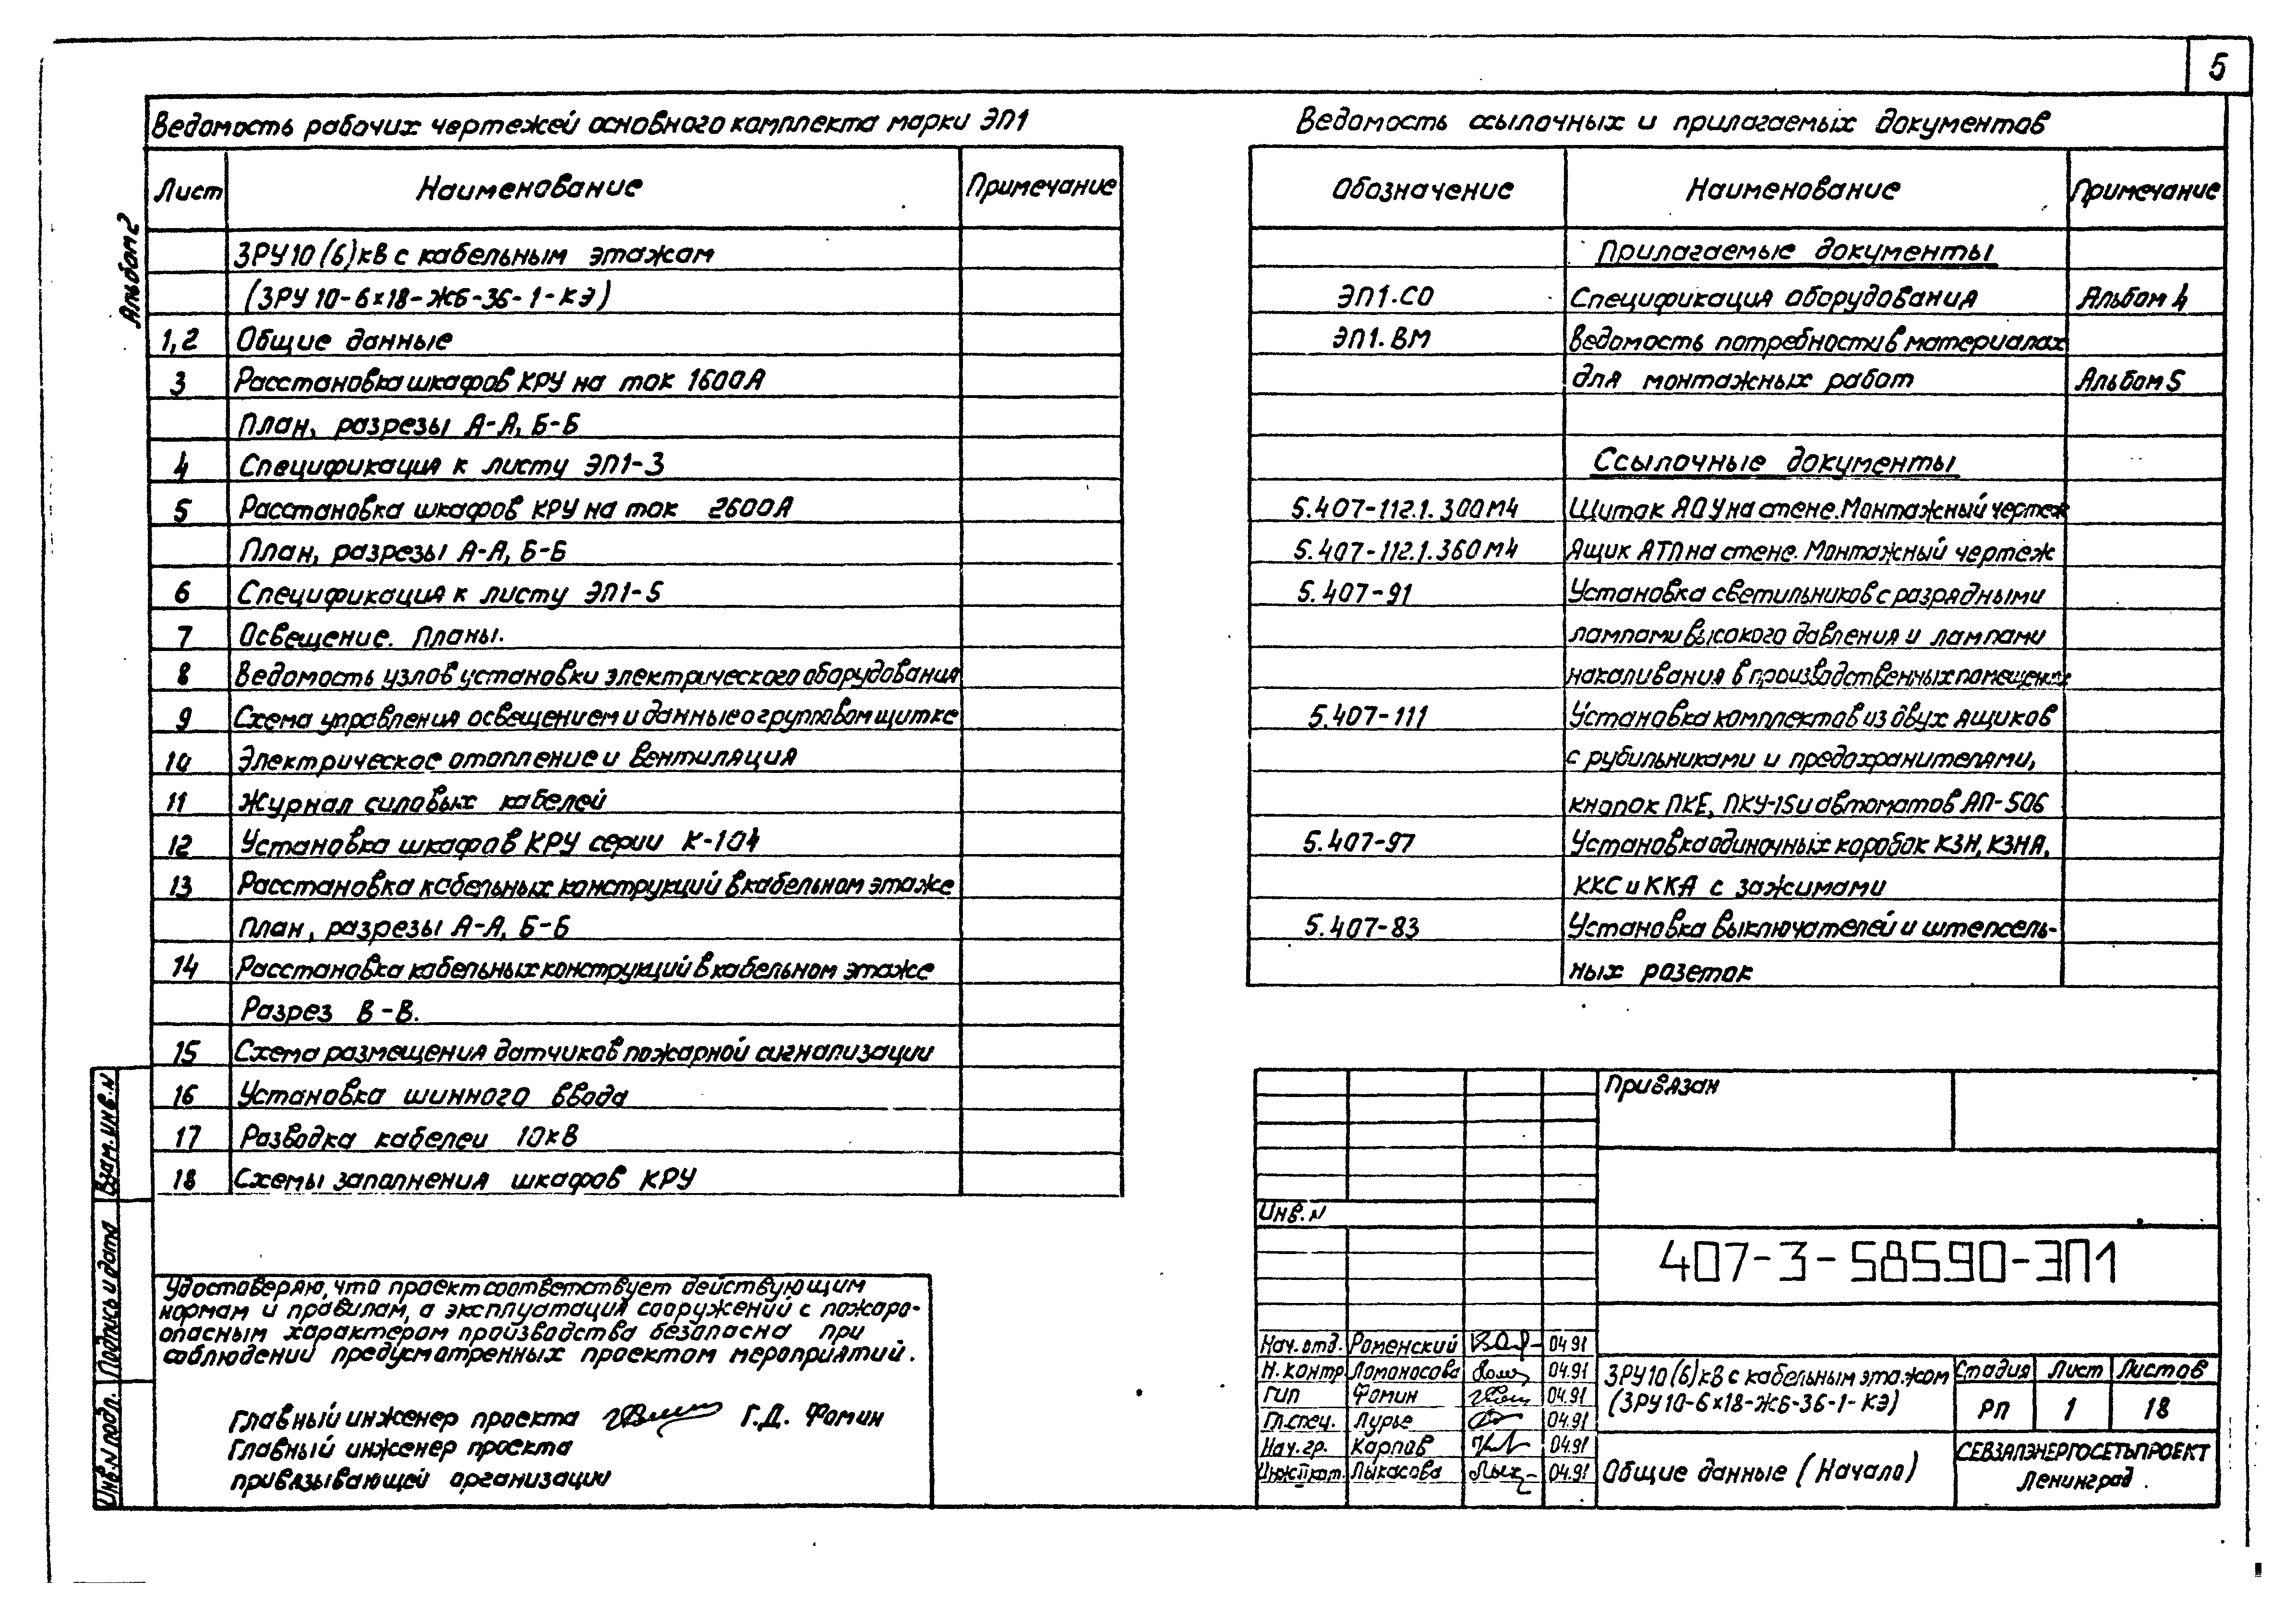 5
Альбом 2
Ведомость рабочих чертежей основного комплекта марки ЭП1
Лист Наименование Примечание
ЗРУ 10 (6) кВ с кабельным этажом
(ЗРУ 10-6х18-ЖБ-36-1-КЭ)
1,2 Общие данные
3 Расстановка шкафов КРУ на ток 1600А
План, разрезы А-А, Б-Б
4 Спецификация к листу ЭП1-3
5 Расстановка шкафов КРУ на ток 2600А
План, разрезы А-А, Б-Б
6 Спецификация к листу ЭП1-5
7 Освещение. Планы.
8 Ведомость узлов установки электрического оборудования
9 Схема управления освещением и данные о групповом щитке
10 Электрическое отопление и вентиляция
11 Журнал силовых кабелей
12 Установка шкафов КРУ серии К-104
13 Расстановка кабельных конструкций в кабельном этаже
План, разрезы А-А, Б-Б
14 Расстановка кабельных конструкций в кабельном этаже
Разрез В-В.
15 Схема размещения датчиков пожарной сигнализации
16 Установка шинного ввода
17 Разводка кабелей 10кВ
18 Схемы заполнения шкафов КРУ
Удостоверяю, что проект соответствует действующим
нормам и правилам, а эксплуатация сооружений с пожаро-
опасным характером производства безопасна при
соблюдении предусмотренных проектом мероприятий.
Главный инженер проекта Г.Д. Фомин
Главный инженер проекта
привязывающей организации
Взам. инв. N
Подпись и дата
Инв. N подл.
Ведомость ссылочных и прилагаемых документов
Обозначение Наименование Примечание
Прилагаемые документы
ЭП1.СО Спецификация оборудования Альбом 4
ЭП1.ВМ Ведомость потребности в материалах
для монтажных работ Альбом 5
Ссылочные документы
5.407-112.1.300МЧ Щиток ЯОУ на стене. Монтажный чертеж
5.407-112.1.360МЧ Ящик ЯТП на стене. Монтажный чертеж
5.407-91 Установка светильников с разрядными
лампами высокого давления и лампами
накаливания в производственных помещениях
5.407-111 Установка комплектов из двух ящиков
с рубильниками и предохранителями,
кнопок ПКЕ, ПКУ-15 и автоматов АП-50б
5.407-97 Установка одиночных коробок КЗН, КЗНА,
ККС и ККА с зажимами
5.407-83 Установка выключателей и штепсель-
ных розеток
Привязан
Инв. N
407-3-585.90-ЭП1
Нач. отд. Роменский 04.91
Н. контр Ломоносова 04.91
ГИП Фомин 04.91
Гл. спец. Лурье 04.91
Нач. гр. Карпов 04.91
Инж. II кат. Лыкасова 04.91
ЗРУ 10 (6) кВ с кабельным этажом
(ЗРУ 10-6х18-ЖБ-36-1-КЭ)
Стадия Лист Листов
РП 1 18
Общие данные (Начало)
СЕВЗАПЭНЕРГОСЕТЬПРОЕКТ
Ленинград